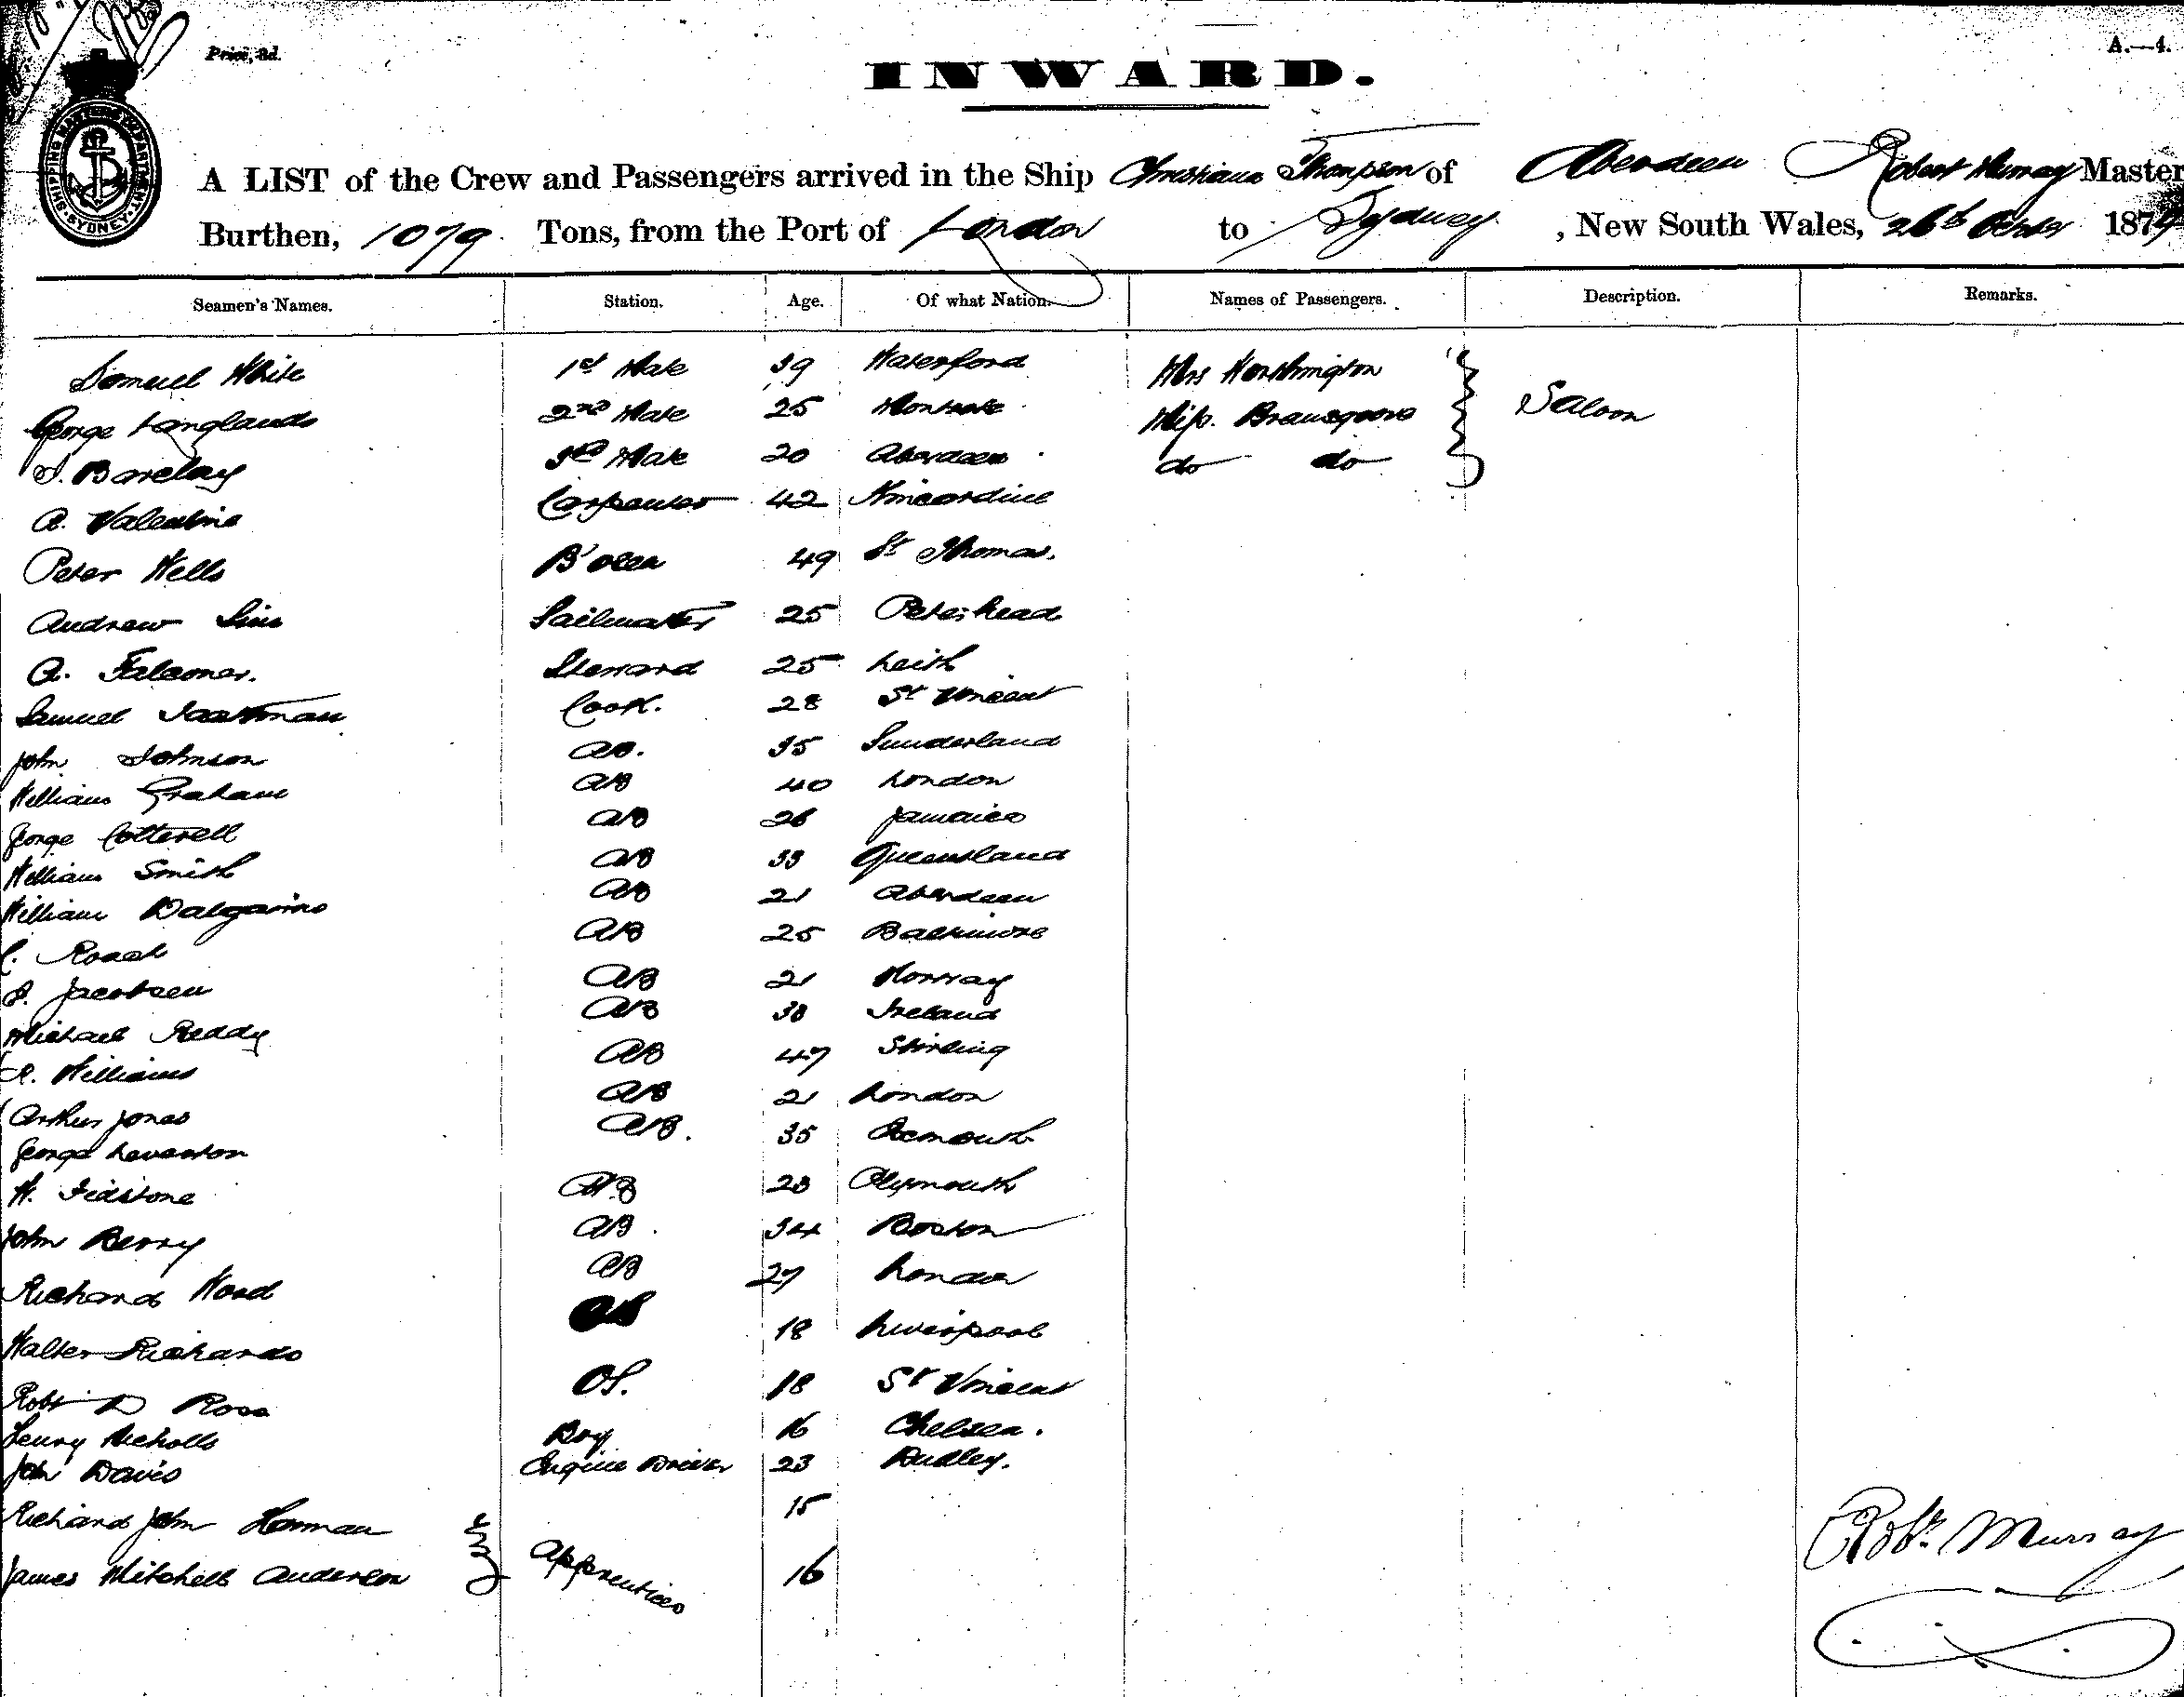 Price, 3d.
A.—4.
INWARD.
SHIPPING MASTERS DEPARTMENT SYDNEY
A LIST of the Crew and Passengers arrived in the Ship Christiana Thompson of Aberdeen Robert Murray Master
Burthen, 1079 Tons, from the Port of London to Sydney, New South Wales, 26th 1874
Seamen's Names. Station. Age. Of what Nation. Names of Passengers. Description. Remarks.
Samuel White 1st Mate 39 Waterford Mrs
George Langlands 2nd Mate 25 Montrose Miss Saloon
Barclay 3rd Mate 20 Aberdeen do do
A. Valentine Carpenter 42 Kincardine
Peter Wells B'osen 49 St Thomas.
Andrew Sim Sailmaker 25 Peterhead
A. Falconer. Steward 25 Leith
Samuel Cook. 28 St Vincent
John Johnson AB. 35 Sunderland
William Graham AB 40 London
George Cotterell AB 26 Jamaica
William Smith AB 33 Queensland
William Dalgarno AB 21 Aberdeen
C. Roach AB 25 Baltimore
Jacobsen AB 21 Norway
Michael Reddy AB 38 Ireland
Williams AB 47 Stirling
Arthur Jones AB 21 London
George Leverton AB. 35 Exmouth
W. Fidstone AB 23 Plymouth
John Berry AB. 34 Boston
Richard Wood AB 27 London
Walter Richards OS 18 Liverpool
Robt D Ross OS. 18 St Vincent
Henry Nicholls Boy 16 Chelsea.
John Davis Engine Driver 23 Dudley.
Richard John Homan 15
James Mitchell Anderson Apprentices 16
Robt. Murray